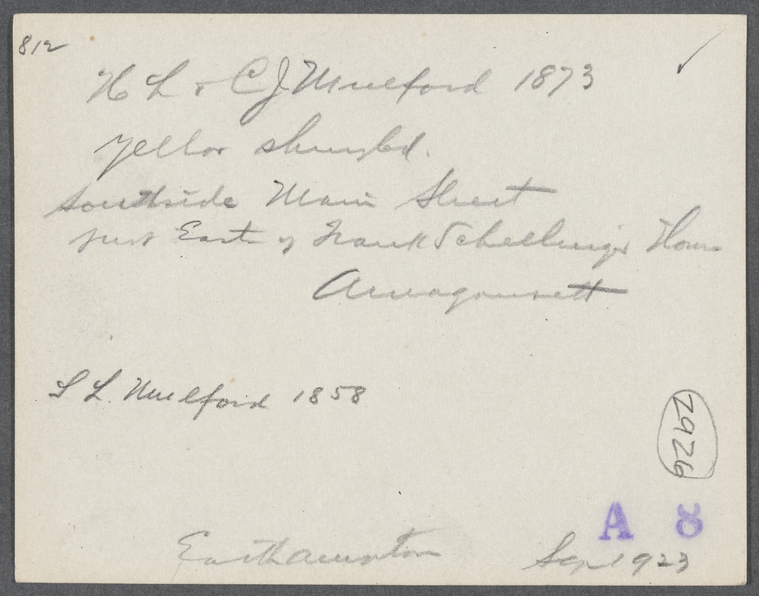 812
H L & C J Mulford 1873
Yellow shingled.
Southside Main Street
just East of Frank Schellinger House
Amagansett
S L. Mulford 1858
2926
A 8
Easthampton Sep 1923